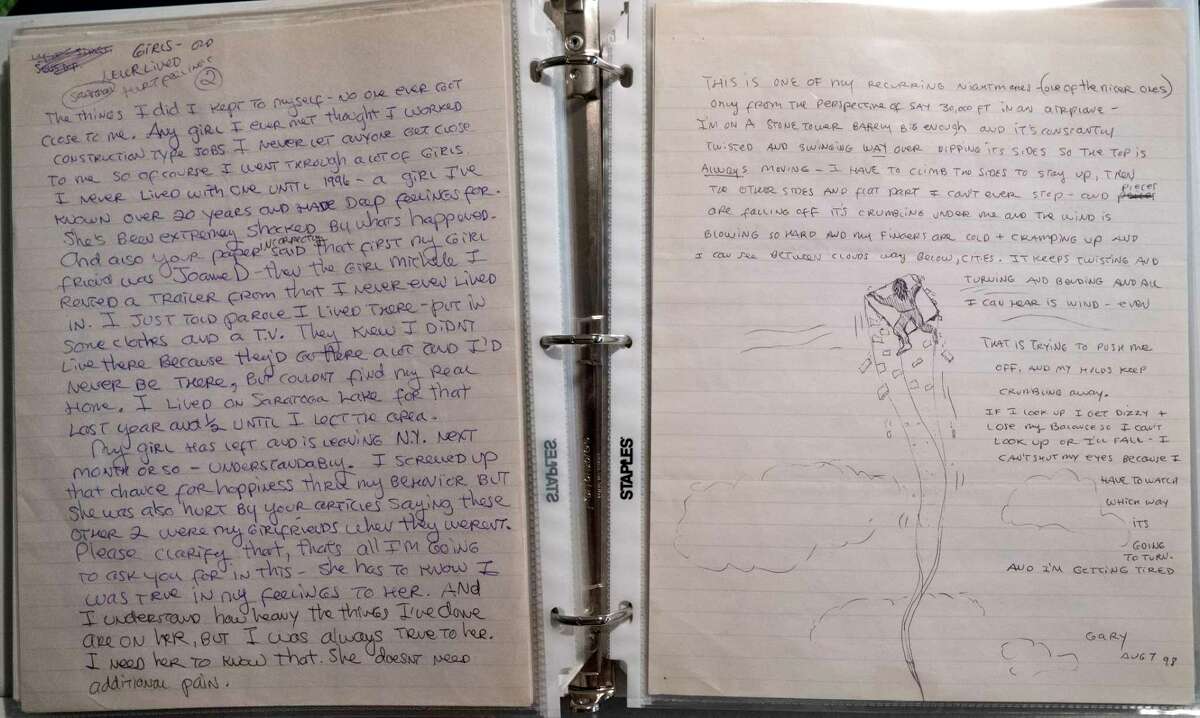 GIRLS - OLD
NEVER LIVED
SARATOGA HURT FEELINGS
2
The things I did I kept to myself - no one ever got
close to me. Any girl I ever met thought I worked
construction type jobs. I never let anyone get close
to me so of course I went through a lot of girls.
I never lived with one until 1996 - a girl I've
known over 20 years and had deep feelings for.
She's been extremely shocked by whats happened.
And also your paper incorrectly said that first my girl
friend was Joanne D - then the girl Michele I
rented a trailer from that I never even lived
in. I just told parole I lived there - put in
some clothes and a T.V. They knew I didnt
live there because they'd go there alot and I'd
never be there, but couldnt find my real
home. I lived on Saratoga Lake for that
last year and 1/2 until I left the area.
My girl has left and is leaving N.Y. next
month or so - understandably. I screwed up
that chance for happiness thru my behavior BUT
she was also hurt by your articles saying these
other 2 were my girlfriends when they werent.
Please clarify that, that's all I'm going
to ask you for in this - she has to know I
was true in my feelings to her. AND
I understand how heavy the things I've done
are on her, but I was always true to her.
I need her to know that. She doesnt need
additional pain.
STAPLES
THIS IS ONE OF MY RECURRING NIGHTMARES (ONE OF THE NICER ONES)
ONLY FROM THE PERSPECTIVE OF SAY 30,000 FT IN AN AIRPLANE -
I'M ON A STONE TOWER BARELY BIG ENOUGH AND IT'S CONSTANTLY
TWISTED AND SWINGING WAY OVER DIPPING ITS SIDES SO THE TOP IS
ALWAYS MOVING - I HAVE TO CLIMB THE SIDES TO STAY UP, THEN
THE OTHER SIDES AND FLAT PART I CAN'T EVER STOP - AND PIECES
ARE FALLING OFF IT'S CRUMBLING UNDER ME AND THE WIND IS
BLOWING SO HARD AND MY FINGERS ARE COLD + CRAMPING UP AND
I CAN SEE BETWEEN CLOUDS WAY BELOW, CITIES. IT KEEPS TWISTING AND
TURNING AND BENDING AND ALL
I CAN HEAR IS WIND - EVEN
THAT IS TRYING TO PUSH ME
OFF, AND MY HOLDS KEEP
CRUMBLING AWAY.
IF I LOOK UP I GET DIZZY +
LOSE MY BALANCE SO I CAN'T
LOOK UP OR I'LL FALL - I
CAN'T SHUT MY EYES BECAUSE I
HAVE TO WATCH
WHICH WAY
ITS
GOING
TO TURN.
AND I'M GETTING TIRED
GARY
AUG 7 98